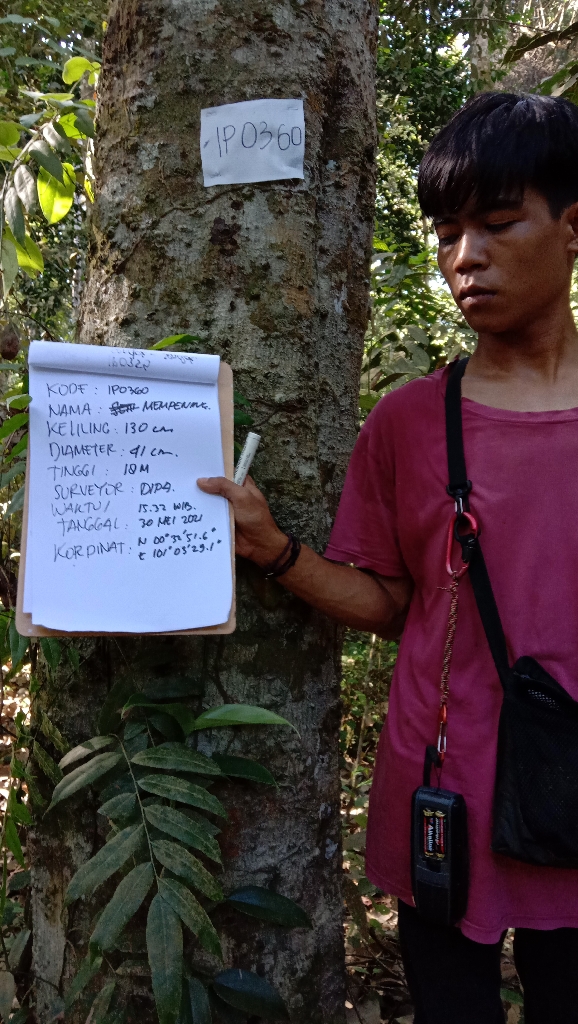 IP0360
KODE : IP0360
NAMA : MEMPENING.
KELILING : 130 cm
DIAMETER : 41 cm.
TINGGI : 18 M
SURVEYOR : DIPA.
WAKTU / 15.32 WIB.
TANGGAL : 30 MEI 2021
KORDINAT : N 00°32'51.6"
E 101°03'29.1"
Alkaline